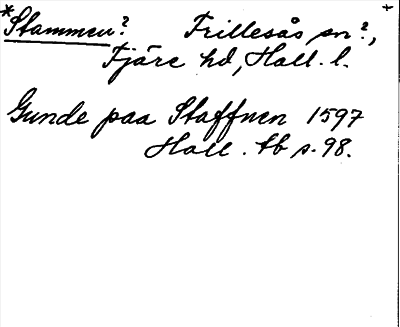 *Stammen? Frillesås sn?,
Fjäre hd, Hall. l.
Gunde paa Staffnen 1597
Hall. tb s. 98.